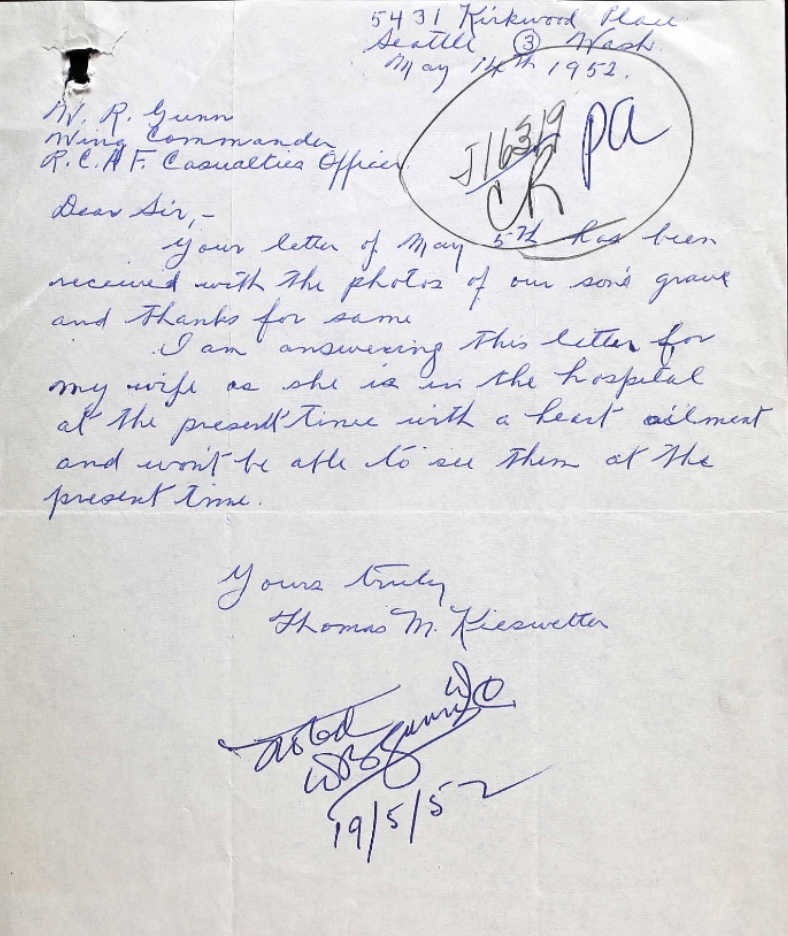 5431 Kirkwood Place
Seattle ③ Wash.
May 14th 1952.
J16319 pa
CR
W. R. Gunn
Wing Commander
R.C.A.F. Casualties Officer
Dear Sir,-
Your letter of May 5th has been
received with the photos of our son's grave
and thanks for same
I am answering this letter for
my wife as she is in the hospital
at the present time with a heart ailment
and won't be able to see them at the
present time.
Yours truly
Thomas M. Kieswetter
Noted
WRGunn W/C
19/5/52